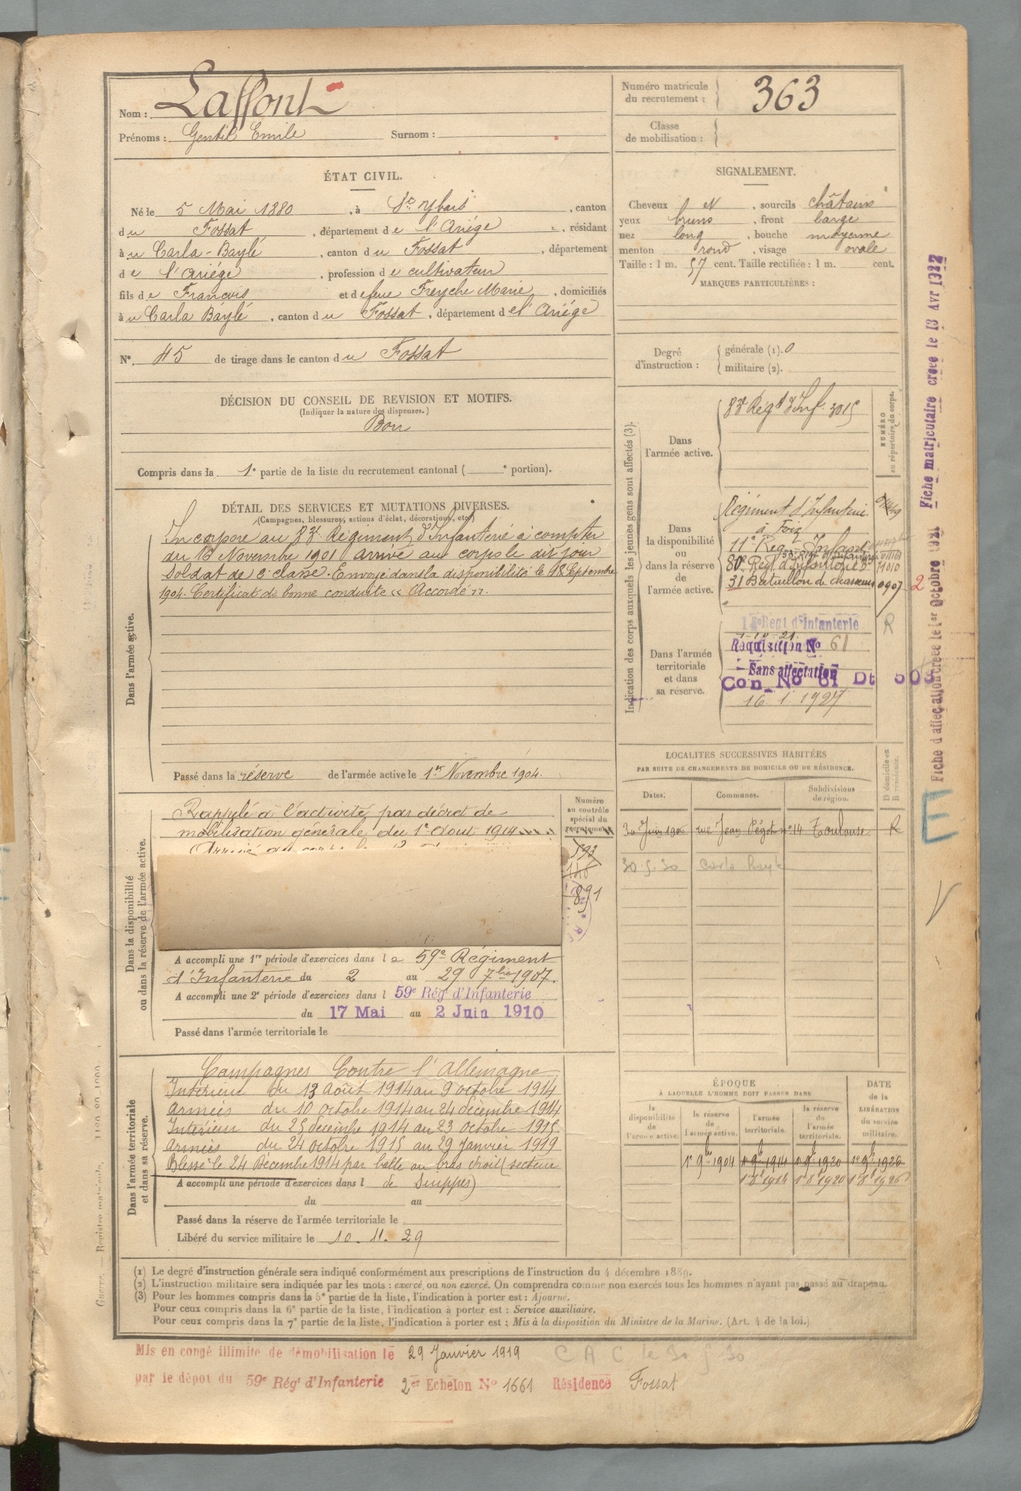 Nom : Laffont
Prénoms : Gentil Emile Surnom :
Numéro matricule du recrutement : 363
Classe de mobilisation :
ÉTAT CIVIL.
Né le 5 Mai 1880, à St Ybars, canton
du Fossat, département de l'Ariége, résidant
à u Carla-Baylé, canton du Fossat, département
de l'Ariége, profession de cultivateur
fils de François et de feue Freyche Marie, domiciliés
à u Carla Baylé, canton du Fossat, département de l'Ariége
N° 45 de tirage dans le canton du Fossat
SIGNALEMENT.
Cheveux ch N, sourcils châtains
yeux bruns, front large
nez long, bouche moyenne
menton rond, visage ovale
Taille : 1 m. 57 cent. Taille rectifiée : 1 m. cent.
MARQUES PARTICULIÈRES :
Degré d'instruction : générale (1). 0
militaire (2).
DÉCISION DU CONSEIL DE REVISION ET MOTIFS.
(Indiquer la nature des dispenses.)
Bon
Compris dans la 1e partie de la liste du recrutement cantonal ( e portion).
DÉTAIL DES SERVICES ET MUTATIONS DIVERSES.
(Campagnes, blessures, actions d'éclat, décorations, etc.)
Dans l'armée active.
Incorporé au 83e Régiment d'Infanterie à compter
du Novembre 1901 arrivé au corps le dit jour
Soldat de 2e classe. Envoyé dans la disponibilité le 18 Septembre
1904. Certificat de bonne conduite « Accordé ».
Passé dans la réserve de l'armée active le 1er Novembre 1904.
Indication des corps auxquels les jeunes gens sont affectés (3).
NUMÉRO au répertoire du corps.
Dans l'armée active.
83e Régt d'Inf. 3015
Dans la disponibilité ou dans la réserve de l'armée active.
Régiment d'Infanterie
à Foix
31 Bataillon de chasseurs 0907 2
Dans l'armée territoriale et dans sa réserve.
Régt d'Infanterie R
Réquisition No 61
Sans affectation
Con No 61 Dt
16 1 1927
Fiche d'affectation créée le 1er Octobre 1921 Fiche matriculaire créée le 13 AVR 1922
LOCALITÉS SUCCESSIVES HABITÉES
PAR SUITE DE CHANGEMENTS DE DOMICILE OU DE RÉSIDENCE.
Dates. Communes. Subdivisions de région. D domicile ou R résidence.
rue Jean n° 14 Toulouse R
30.5.30 Carla Bayle
E
Dans la disponibilité ou dans la réserve de l'armée active.
Numéro au contrôle spécial du recrutement
Rappelé à l'activité par décret de
mobilisation générale du 1er Août 1914
593
891
A accompli une 1re période d'exercices dans le 59e Régiment
d'Infanterie du 2 au 29 7bre 1907.
A accompli une 2e période d'exercices dans l 59e Rég d'Infanterie
du 17 Mai au 2 Juin 1910
Passé dans l'armée territoriale le
Dans l'armée territoriale et dans sa réserve.
Campagnes Contre l'Allemagne
Intérieur du 13 Août 1914 au 9 octobre 1914
Armées du 10 octobre 1914 au 24 décembre 1914
Intérieur du 25 décembre 1914 au 23 octobre 1915
Armées du 24 octobre 1915 au 29 janvier 1919
Blessé le 24 Décembre 1914 par balle au bras droit (secteur
A accompli une période d'exercices dans l de Suippes)
du au
Passé dans la réserve de l'armée territoriale le
Libéré du service militaire le 10.11.29
ÉPOQUE
À LAQUELLE L'HOMME DOIT PASSER DANS
la disponibilité de l'armée active. la réserve de l'armée active. l'armée territoriale. la réserve de l'armée territoriale.
DATE de la LIBÉRATION du service militaire.
1er 9bre 1904 1er 9bre 1914 1er 9bre 1920 1er 9bre 1926
(1) Le degré d'instruction générale sera indiqué conformément aux prescriptions de l'instruction du 4 décembre 1889.
(2) L'instruction militaire sera indiquée par les mots : exercé ou non exercé. On comprendra comme non exercés tous les hommes n'ayant pas passé au drapeau.
(3) Pour les hommes compris dans la 5e partie de la liste, l'indication à porter est : Ajourné.
Pour ceux compris dans la 6e partie de la liste, l'indication à porter est : Service auxiliaire.
Pour ceux compris dans la 7e partie de la liste, l'indication à porter est : Mis à la disposition du Ministre de la Marine. (Art. 4 de la loi.)
Mis en congé illimité de démobilisation le 29 Janvier 1919
C A C le 30 5 30
par le dépot du 59e Rég d'Infanterie 2e Echelon No 1661 Résidence Fossat